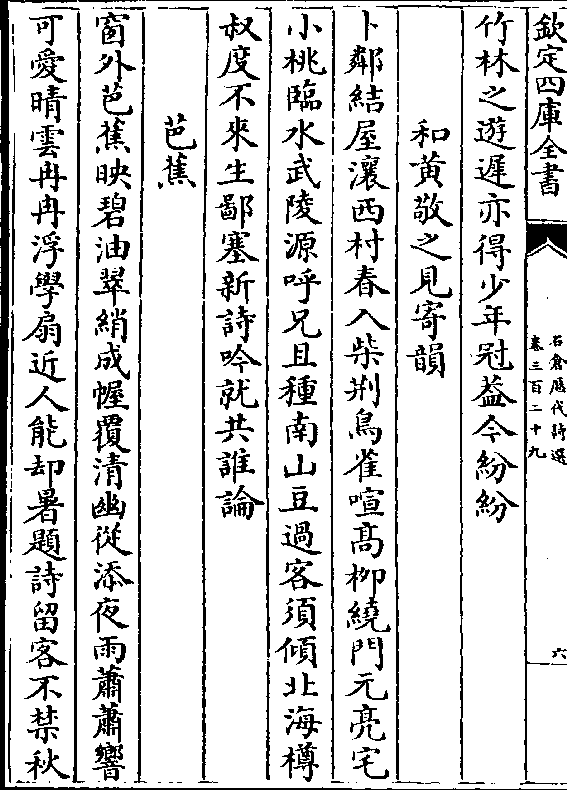 欽定四庫全書
石倉歴代詩選
卷三百二十九
六
竹林之遊遲亦得少年冠葢今紛紛
和黄敬之見寄韻
卜鄰結屋瀼西村春入柴荆鳥雀喧髙栁繞門元亮宅
小桃臨水武陵源呼兄且種南山豆過客須傾北海樽
叔度不來生鄙塞新詩吟就共誰論
芭蕉
窗外芭蕉映碧油翠綃成幄覆清幽從添夜雨蕭蕭響
可愛晴雲冉冉浮學扇近人能却暑題詩留客不禁秋